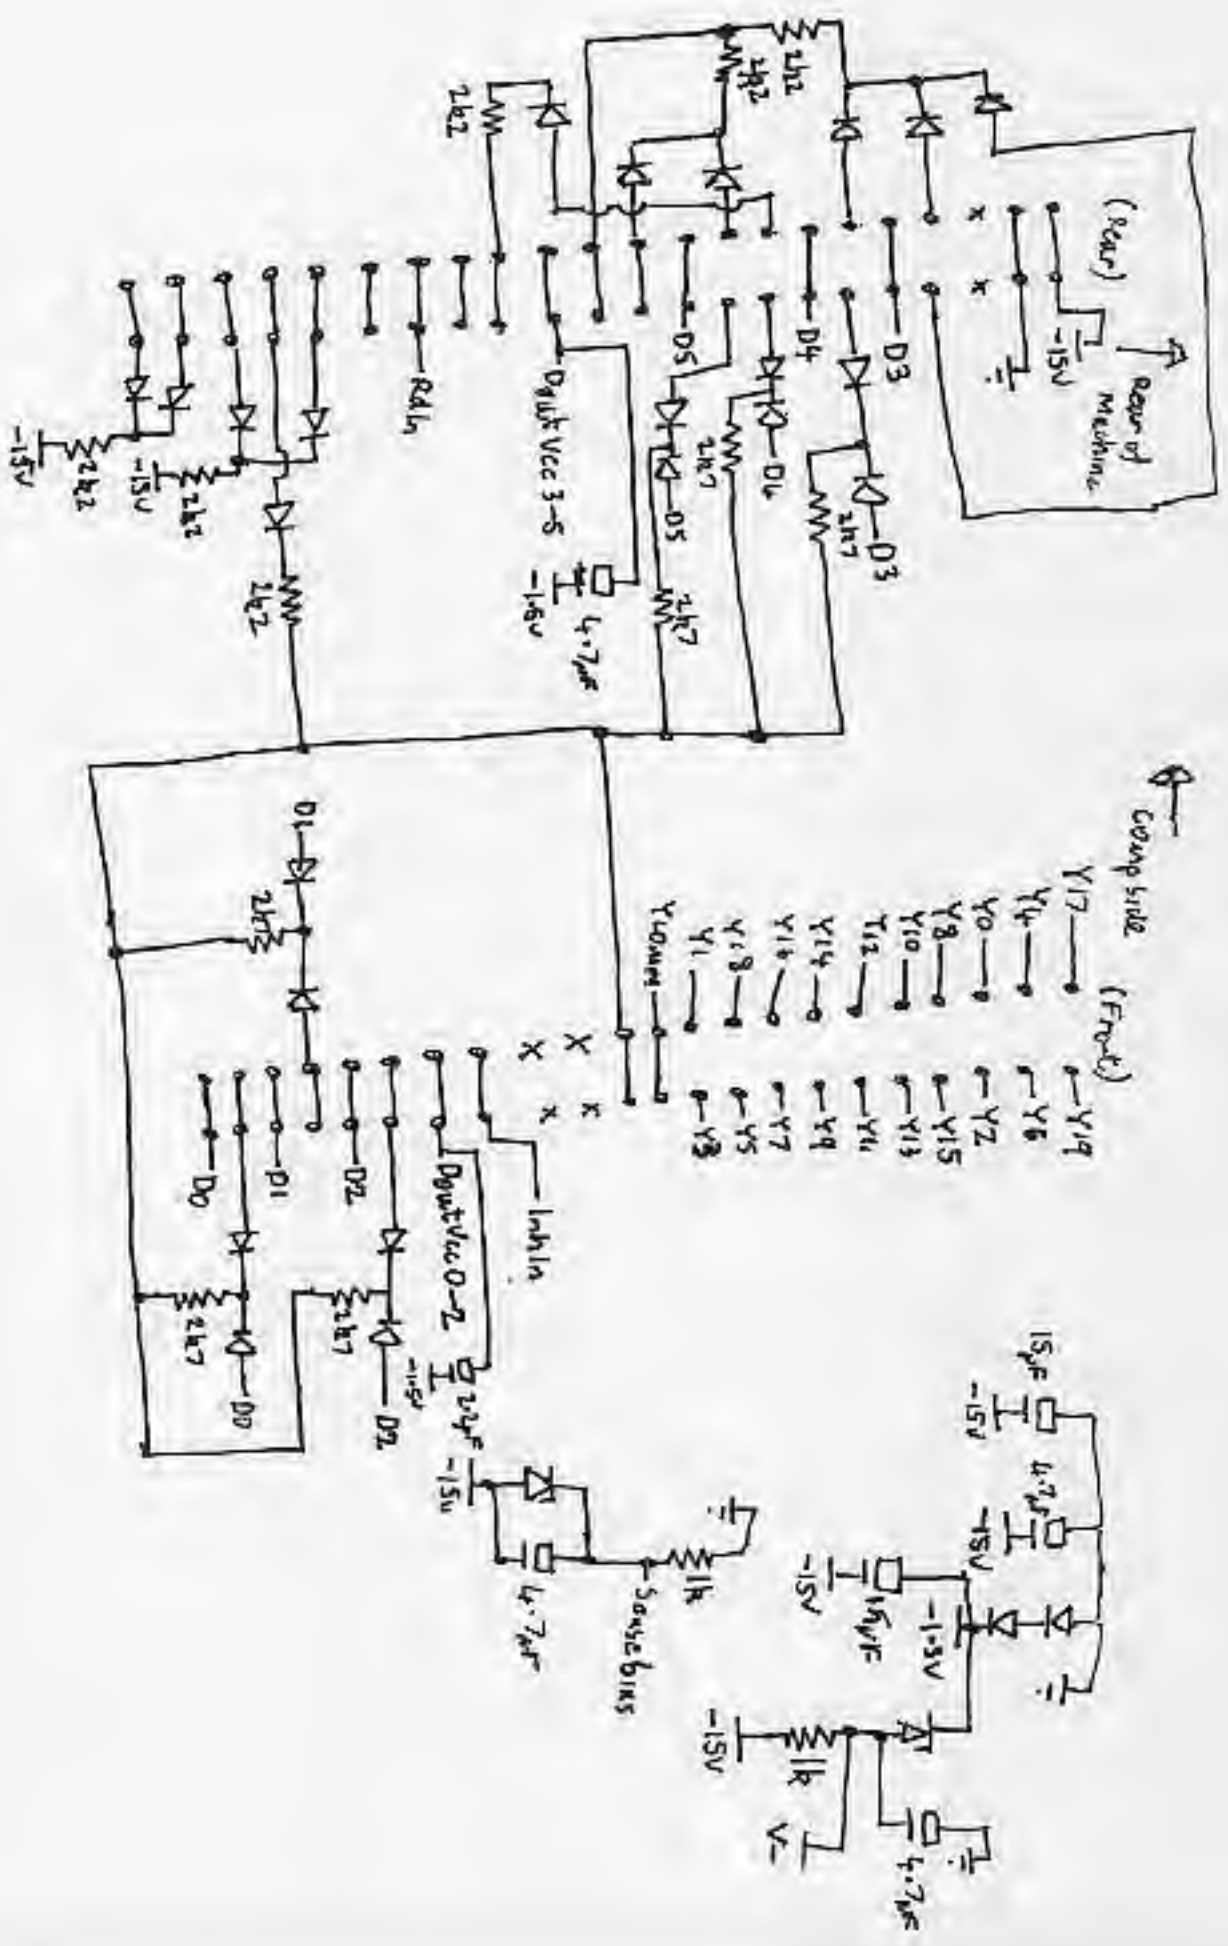 (Rear)
-15V
Rear of
Machine
2k2
2k2
2k2
D3
D4
D5
D3
2k7
D4
2k7
D5
2k7
DoutVcc 3-5
4.7µF
-1.5V
RdIn
2k2
-15V
2k2
-15V
2k2
Comp side
(Front)
Y17
Y4
Y0
Y8
Y10
Y12
Y14
Y16
Y18
Y1
Ycomm
Y19
Y6
Y2
Y15
Y13
Y11
Y9
Y7
Y5
Y3
InhIn
DoutVcc0-2
D2
D1
D0
D1
2k7
D0
2k7
D2
2k7
2.2µF
-1.5V
-15V
4.7µF
Sensebias
1k
15µF
-15V
4.7µF
-15V
15µF
-15V
-1.5V
1k
-15V
V-
4.7µF